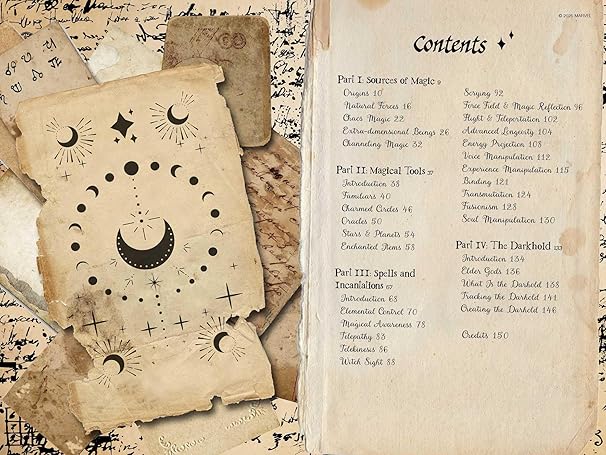 © 2025 MARVEL
Contents
Part I: Sources of Magic 9
Origins 10
Natural Forces 16
Chaos Magic 22
Extra-dimensional Beings 26
Channeling Magic 32
Part II: Magical Tools 37
Introduction 38
Familiars 40
Charmed Circles 46
Oracles 50
Stars & Planets 54
Enchanted Items 58
Part III: Spells and
Incantations 67
Introduction 68
Elemental Control 70
Magical Awareness 78
Telepathy 83
Telekinesis 86
Witch Sight 88
Scrying 92
Force Field & Magic Reflection 96
Flight & Teleportation 102
Advanced Longevity 104
Energy Projection 108
Voice Manipulation 112
Experience Manipulation 115
Binding 121
Transmutation 124
Fusionism 128
Soul Manipulation 130
Part IV: The Darkhold 133
Introduction 134
Elder Gods 136
What Is the Darkhold 138
Tracking the Darkhold 141
Creating the Darkhold 146
Credits 150